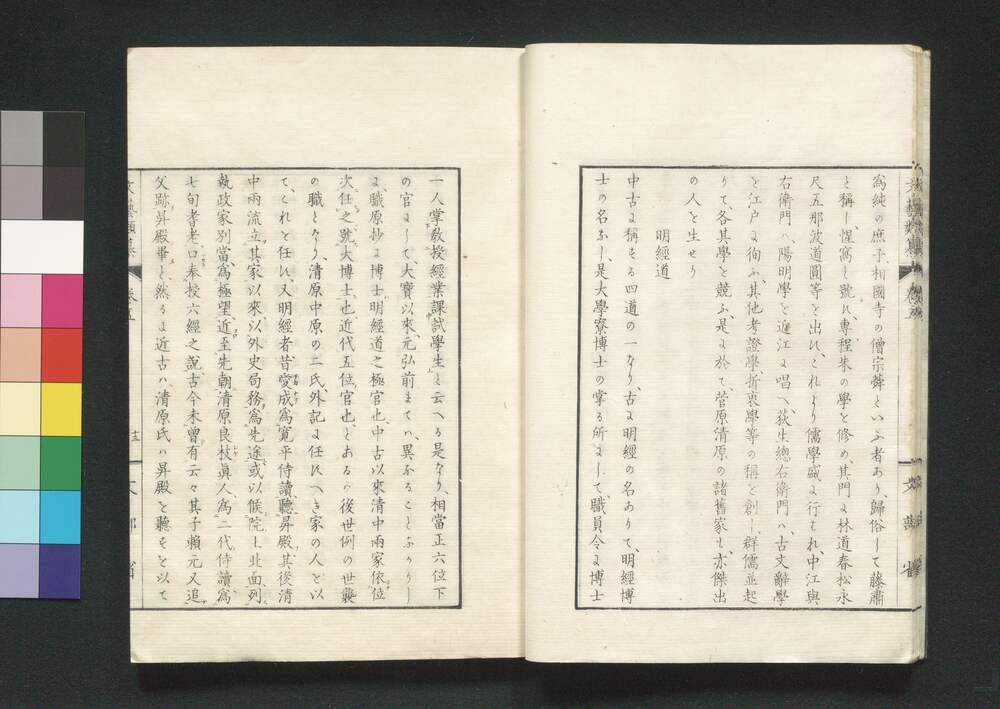 爲純の庶子相國寺の僧宗蕣といふ者あり、歸俗して藤肅
と稱し、惺窩と號れ、專程朱の學を修め其門よ林道春松永
尺五那波道圓等と出れ、これより儒學盛よ行もれ、中江與
右衛門ハ、陽明學を近江よ唱へ荻生總右衛門ハ、古文辭學
と江戸よ徇ふ、其他考證學、折衷學等の稱と創し、群儒並起
りて、各其學を競ふ、是よ於て、菅原清原の諸舊家も、亦傑出
の人と生せり
明經道
中古よ稱そる四道の一なり、古よ明經の名ありて、明經博
士の名あし、是大學寮博士の掌る所よして、職員令よ博士
文部省
一人掌教授經業課試學生と云へる是なり、相當正六位下
の官よして、大寶以來元弘前まてハ、異なることふかりし
よ、職原抄よ博士明經道之極官也、中古以來清中兩家依位
次、任之、號大博士也、近代五位官也、とあるハ、後世例の世襲
の職となり、清原中原の二氏、外記よ任れへき家の人と以
て、これと任れ、又明經者、昔愛成爲寬平侍讀、聽昇殿、其後清
中兩流立其家以來、以外史局務爲先途、或以候院上北面列
執政家別當、爲極望、近至先朝清原良枝眞人、爲二代侍讀、爲
七旬耆老、口奉授六經之説、古今未曾有云々、其子賴元又追
父跡、昇殿畢と、然るよ近古ハ、清原氏ハ昇殿と聽そと以て
文藝類纂 卷五
文部省